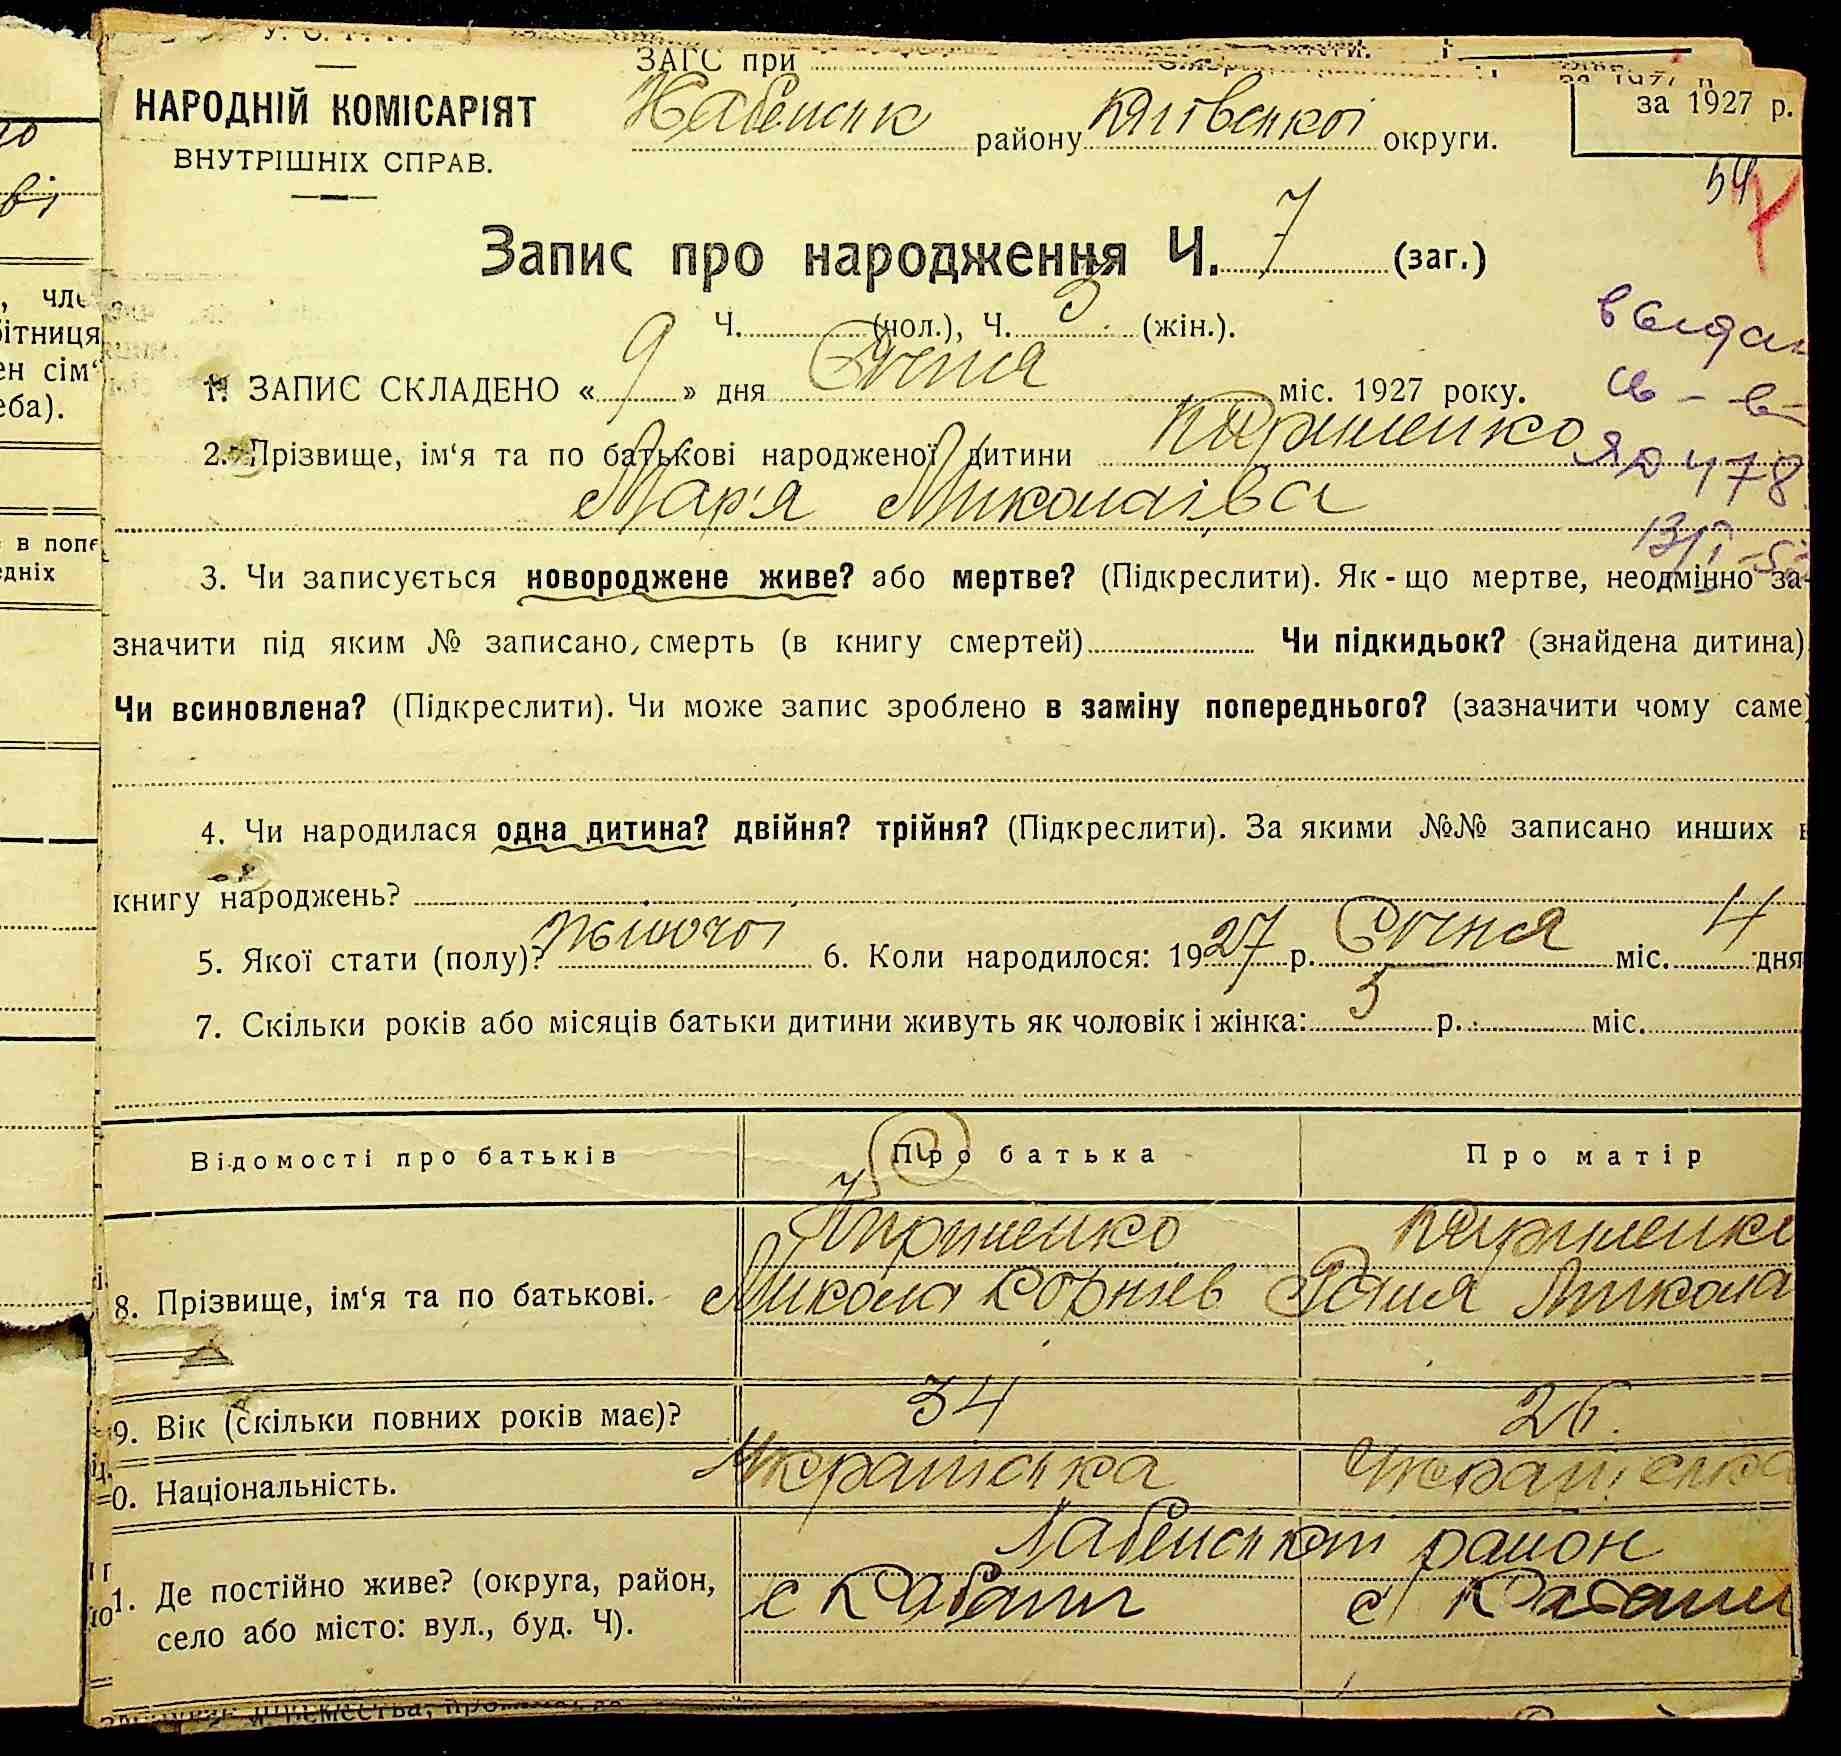 ЗАГС при
НАРОДНІЙ КОМІСАРІЯТ
ВНУТРІШНІХ СПРАВ.
району Київської округи.
за 1927 р.
54
Запис про народження Ч. 7 (заг.)
Ч. (чол.), Ч. 3 (жін.).
1. ЗАПИС СКЛАДЕНО « 9 » дня Січня міс. 1927 року.
2. Прізвище, ім‘я та по батькові народженої дитини Кириленко
Мар'я Миколаіва
ЯР 478
3. Чи записується новороджене живе? або мертве? (Підкреслити). Як - що мертве, неодмінно за-
значити під яким № записано, смерть (в книгу смертей) Чи підкидьок? (знайдена дитина)
Чи всиновлена? (Підкреслити). Чи може запис зроблено в заміну попереднього? (зазначити чому саме)
4. Чи народилася одна дитина? двійня? трійня? (Підкреслити). За якими №№ записано инших в
книгу народжень?
5. Якої стати (полу)? жіночої 6. Коли народилося: 1927 р. Січня міс. 4 дня
7. Скільки років або місяців батьки дитини живуть як чоловік і жінка: 5 р. міс.
Відомості про батьків Про батька Про матір
Кириленко Кириленко
8. Прізвище, ім‘я та по батькові. Микола Корніев Микола
9. Вік (скільки повних років має)? 34 26
0. Національність. Українська Українська
район
1. Де постійно живе? (округа, район, с Кабани с Кабани
село або місто: вул., буд. Ч).